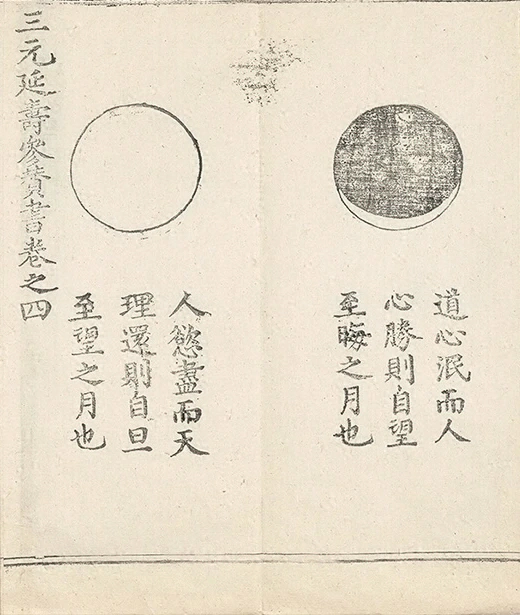 道心泯而人
心勝則自望
至晦之月也
人慾盡而天
理還則自旦
至望之月也
三元延壽參贊書卷之四